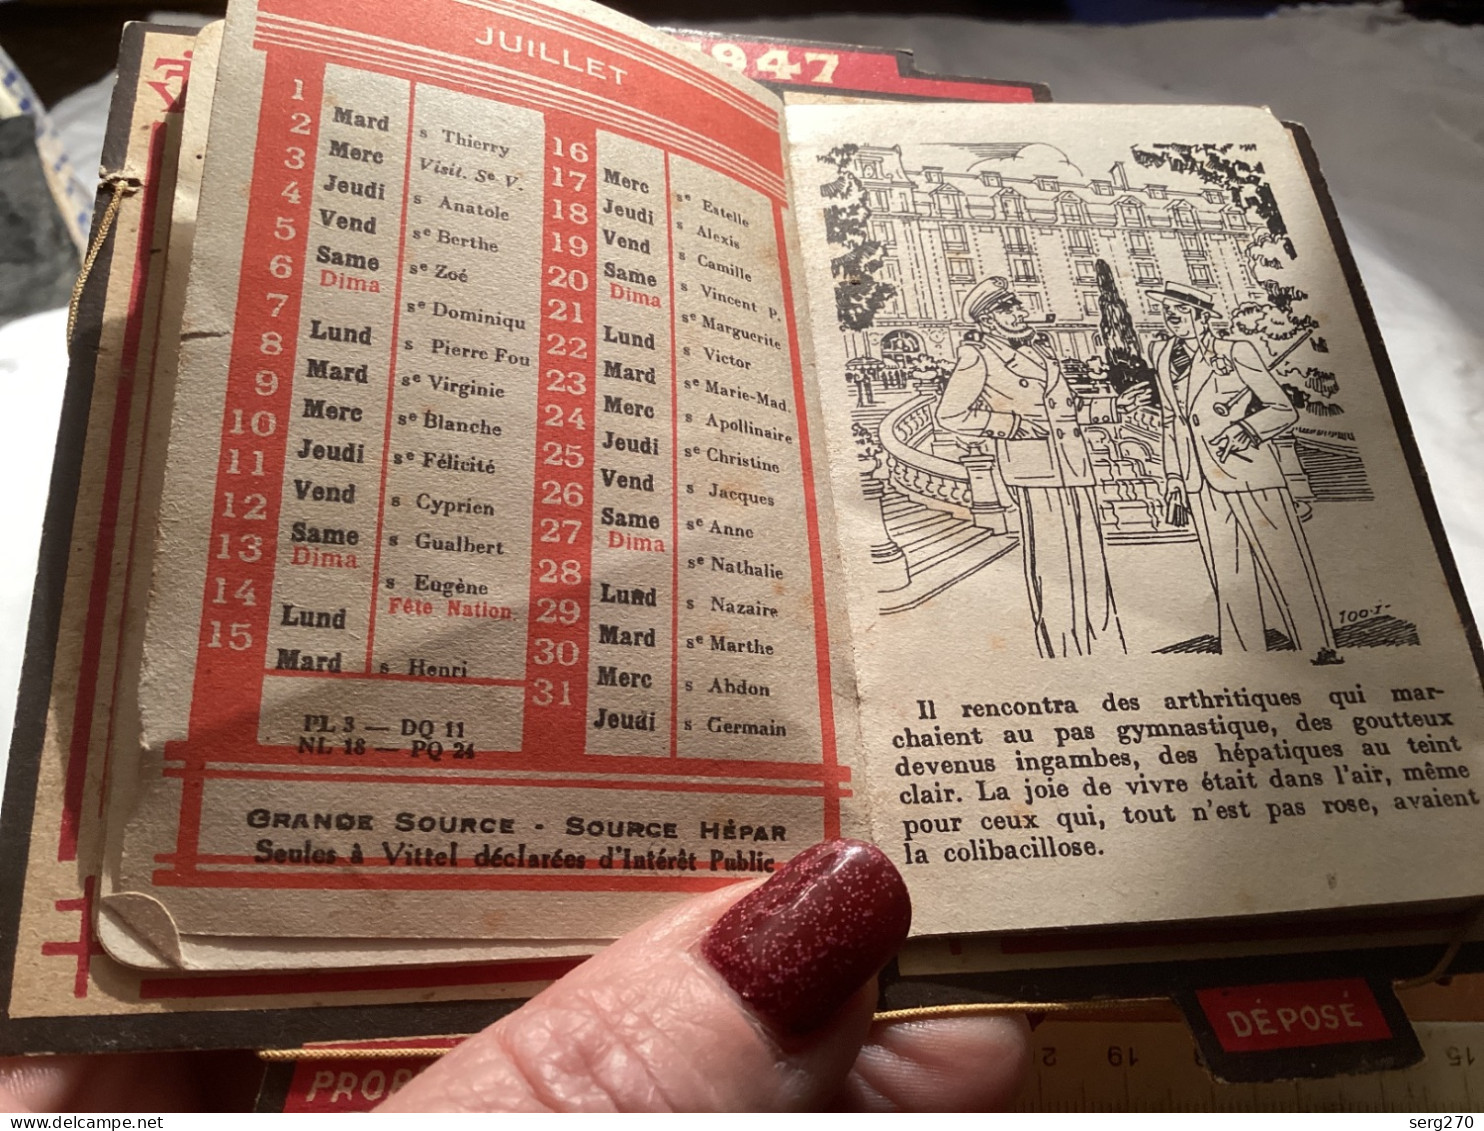 1947
JUILLET
1 Mard s Thierry
2 Merc Visit. Se V.
3 Jeudi s Anatole
4 Vend se Berthe
5 Same se Zoé
6 Dima se Dominiqu
7 Lund s Pierre Fou
8 Mard se Virginie
9 Merc se Blanche
10 Jeudi se Félicité
11 Vend s Cyprien
12 Same s Gualbert
13 Dima s Eugène
14 Lund Fête Nation.
15 Mard s Henri
PL 3 — DQ 11
NL 18 — PQ 24
16 Merc se Estelle
17 Jeudi s Alexis
18 Vend s Camille
19 Same s Vincent P.
20 Dima se Marguerite
21 Lund s Victor
22 Mard se Marie-Mad.
23 Merc s Apollinaire
24 Jeudi se Christine
25 Vend s Jacques
26 Same se Anne
27 Dima se Nathalie
28 Lund s Nazaire
29 Mard se Marthe
30 Merc s Abdon
31 Jeudi s Germain
GRANDE SOURCE - SOURCE HÉPAR
Seules à Vittel déclarées d'Intérêt Public
Il rencontra des arthritiques qui mar-
chaient au pas gymnastique, des goutteux
devenus ingambes, des hépatiques au teint
clair. La joie de vivre était dans l'air, même
pour ceux qui, tout n'est pas rose, avaient
la colibacillose.
DÉPOSÉ
15
19
serg270